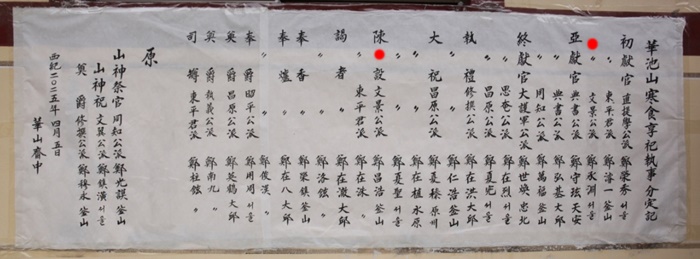 華池山寒食享祀執事分定記
初獻官 直提學公派 鄭榮秀 서울
〃 東平君派 鄭一 釜山
〃 文景公派 鄭永 서울
亞獻官 典書公派 鄭守玹 天安
〃 典書公派 鄭弘基 大邱
〃 同知公派 鄭萬福 釜山
終獻官 大護軍公派 鄭世煥 忠北
〃 思庵公派 鄭在烈 서울
〃 昌原公派 鄭夏 서울
執禮 修撰公派 鄭在洪 大邱
〃 〃 鄭仁浩 釜山
大祝 昌原公派 鄭夏榛 原州
〃 〃 鄭在植 水原
〃 〃 鄭夏聖 서울
陳設 文景公派 鄭昌浩 釜山
〃 東平君派 鄭在洙 〃
謁者 〃 鄭在澈 大邱
〃 〃 鄭洛鉉 〃
奉香 〃 鄭榮鎮 釜山
奉爐 〃 鄭在八 大邱
〃 〃 鄭俊漢 〃
奉爵 昭平公派 鄭周 서울
奠爵 昌原公派 鄭英鶴 大邱
奠爵 執義公派 鄭南九 〃
司罇 東平君派 鄭鉉 〃
原
山神祭官 同知公派 鄭光謨 釜山
山神祝 文翼公派 鄭鎮漢 서울
奠爵 修撰公派 鄭永 釜山
西紀二〇二五年 四月五日
華山齋中